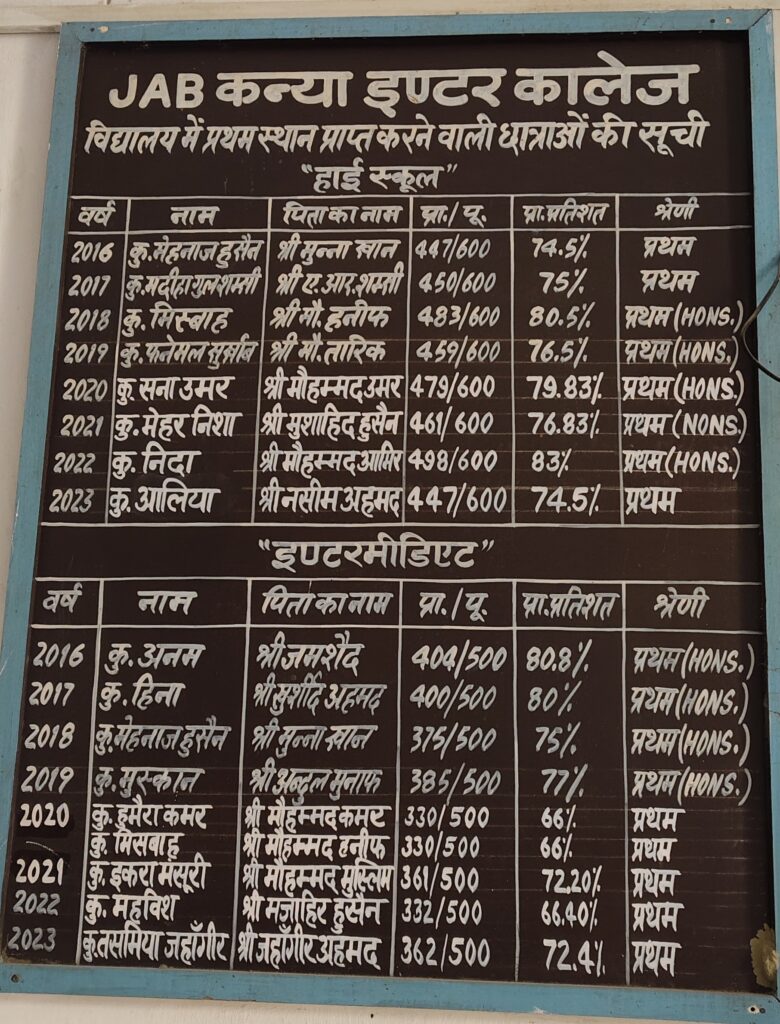 JAB कन्या इण्टर कालेज
विद्यालय में प्रथम स्थान प्राप्त करने वाली छात्राओं की सूची
"हाई स्कूल"
वर्ष नाम पिता का नाम प्रा./पू. प्रा.प्रतिशत श्रेणी
2016 कु. मेहनाज हुसैन श्री मुन्ना खान 447/600 74.5% प्रथम
2017 कु. मदीहा गुल शम्सी श्री ए.आर. शम्सी 450/600 75% प्रथम
2018 कु. मिस्बाह श्री मौ. हनीफ 483/600 80.5% प्रथम (HONS.)
2019 कु. श्री मौ. तारिक 459/600 76.5% प्रथम (HONS.)
2020 कु. सना उमर श्री मौहम्मद उमर 479/600 79.83% प्रथम (HONS.)
2021 कु. मेहर निशा श्री मुशाहिद हुसैन 461/600 76.83% प्रथम (NONS.)
2022 कु. निदा श्री मौहम्मद आमिर 498/600 83% प्रथम (HONS.)
2023 कु. आलिया श्री नसीम अहमद 447/600 74.5% प्रथम
"इण्टरमीडिएट"
वर्ष नाम पिता का नाम प्रा./पू. प्रा.प्रतिशत श्रेणी
2016 कु. अनम श्री जमशैद 404/500 80.8% प्रथम (HONS.)
2017 कु. हिना श्री खुर्शीद अहमद 400/500 80% प्रथम (HONS.)
2018 कु. मेहनाज हुसैन श्री मुन्ना खान 375/500 75% प्रथम (HONS.)
2019 कु. मुस्कान श्री अब्दुल मुनाफ 385/500 77% प्रथम (HONS.)
2020 कु. हुमैरा कमर श्री मौहम्मद कमर 330/500 66% प्रथम
कु. मिसबाह श्री मौहम्मद हनीफ 330/500 66% प्रथम
2021 कु. इकरा मंसूरी श्री मौहम्मद मुस्लिम 361/500 72.20% प्रथम
2022 कु. महविश श्री मजाहिर हुसैन 332/500 66.40% प्रथम
2023 कु. तसमिया जहाँगीर श्री जहाँगीर अहमद 362/500 72.4% प्रथम